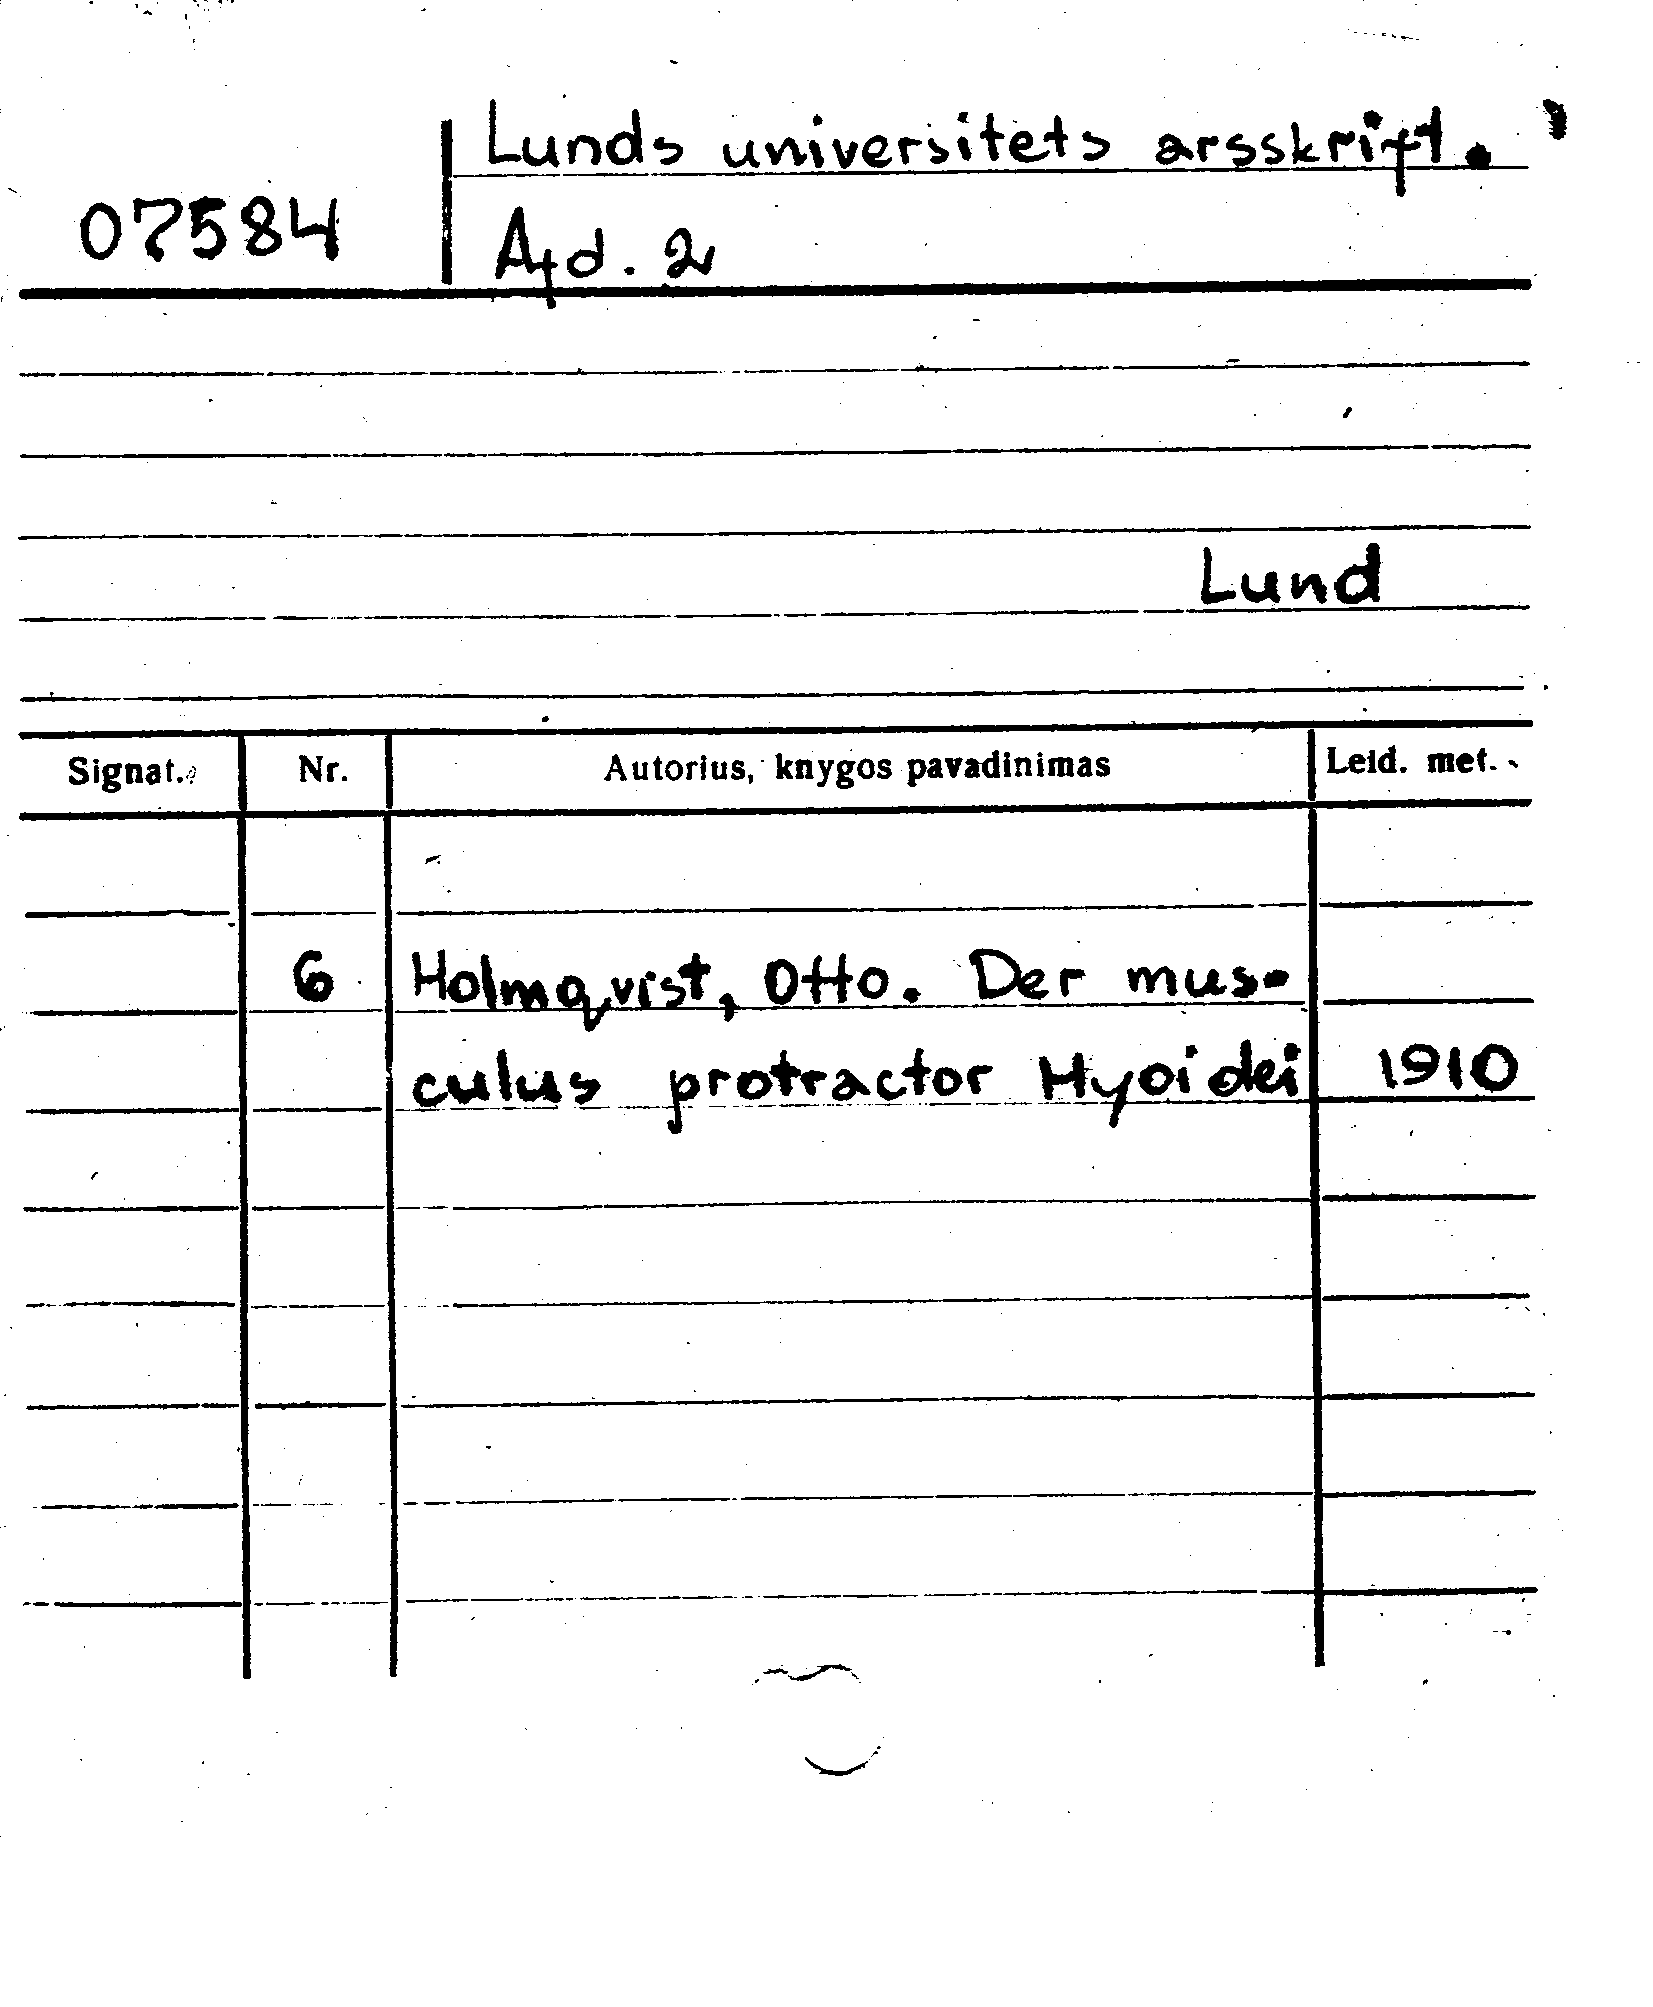 Lunds universitets arsskrift.
07584
Afd. 2
Lund
Signat. Nr. Autorius, knygos pavadinimas Leid. met.
6 Holmqvist, Otto. Der mus-
culus protractor Hyoidei 1910